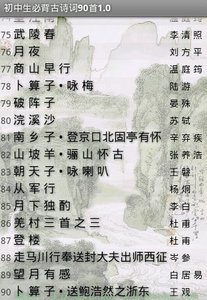 初中生必背古诗词90首1.0
75 武陵春 李清照
76 月夜 刘方平
77 商山早行 温庭筠
78 卜算子·咏梅 陆游
79 破阵子 晏殊
80 浣溪沙 苏轼
81 南乡子·登京口北固亭有怀 辛弃疾
82 山坡羊·骊山怀古 张养浩
83 朝天子·咏喇叭 王磐
84 从军行 杨炯
85 月下独酌 李白
86 羌村三首之三 杜甫
87 登楼 杜甫
88 走马川行奉送封大夫出师西征 岑参
89 望月有感 白居易
90 卜算子·送鲍浩然之浙东 王观